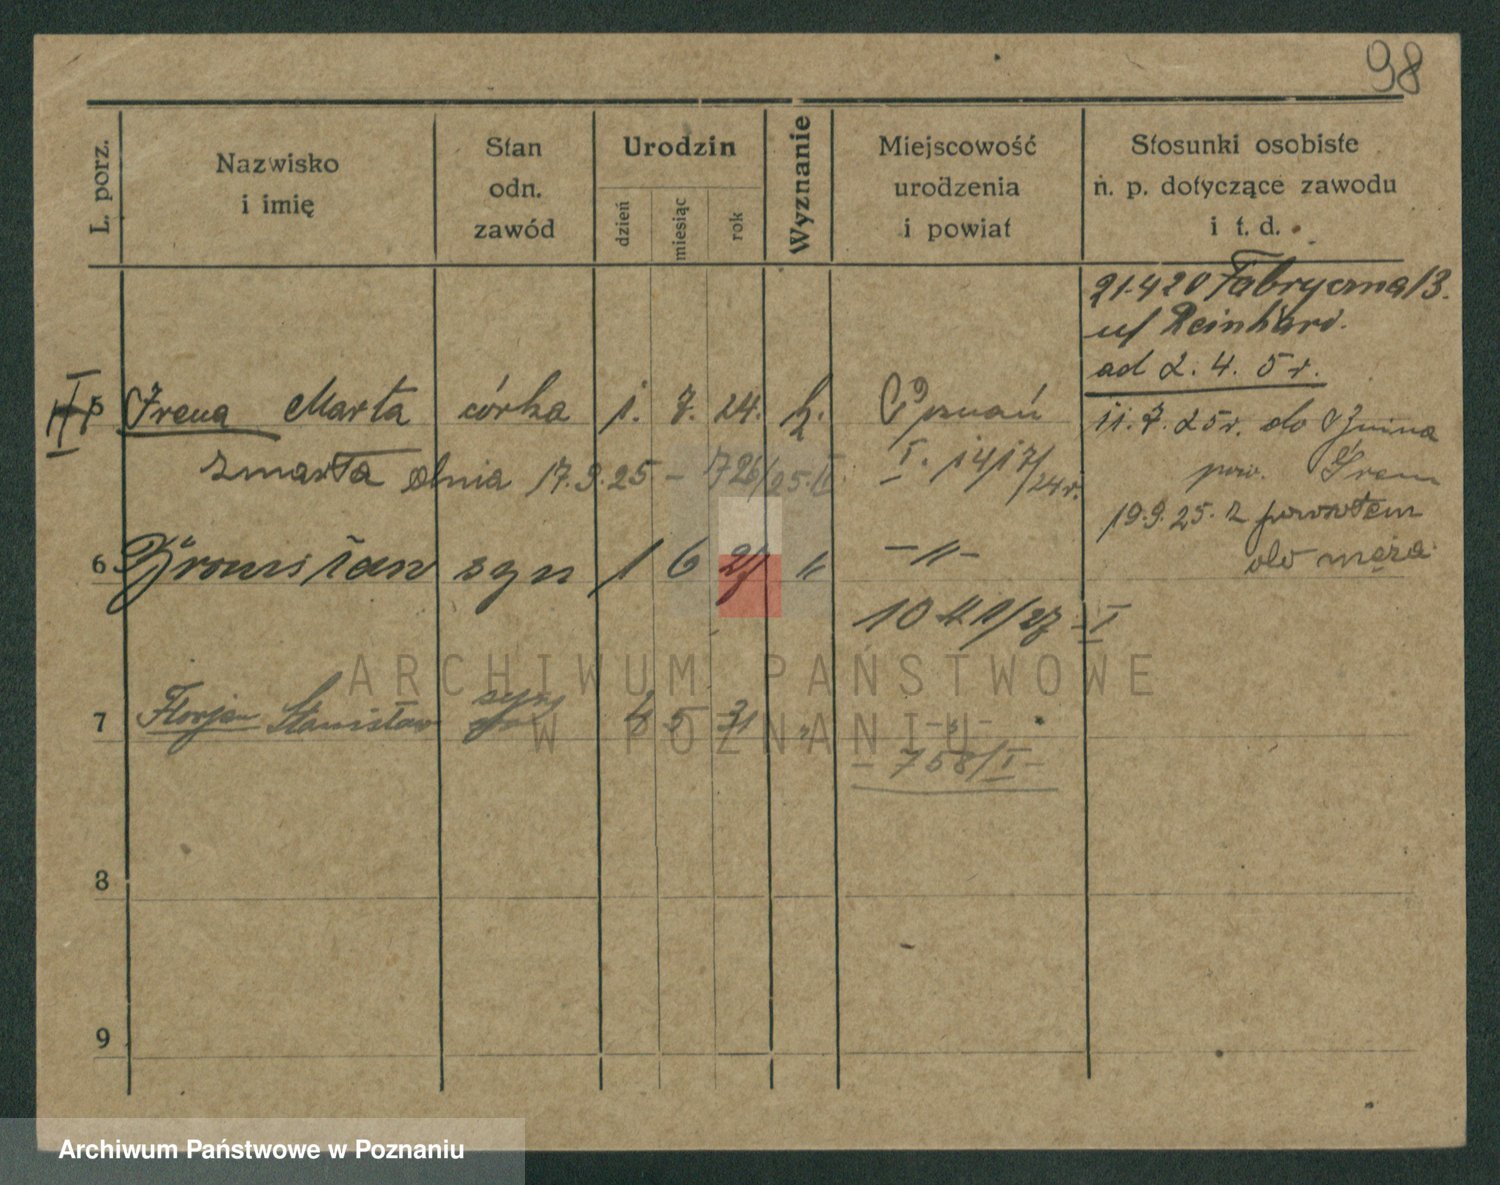 98
L. porz.
Nazwisko
i imię
Stan
odn.
zawód
Urodzin
dzień
miesiąc
rok
Wyznanie
Miejscowość
urodzenia
i powiat
Stosunki osobiste
n. p. dotyczące zawodu
i t. d.
21.4 20 Fabryczna 13.
u/ Reinhard.
ad 2. 4. 5 r.
5 Irena Marta córka 1. 7. 24. k. Poznań
11. 7. 25 r. do
zmarła dnia 17.9.25 – 726/25. II I. 1417/24 r.
pow. Śrem
19.9.25. z powrotem
do męża
6. Bronisław syn 1 6 27 " –"–
1041/27 - I
7 Florjan Stanisław syn 5 31 " -"-
– 758/I –
8
9
ARCHIWUM PAŃSTWOWE
W POZNANIU
Archiwum Państwowe w Poznaniu